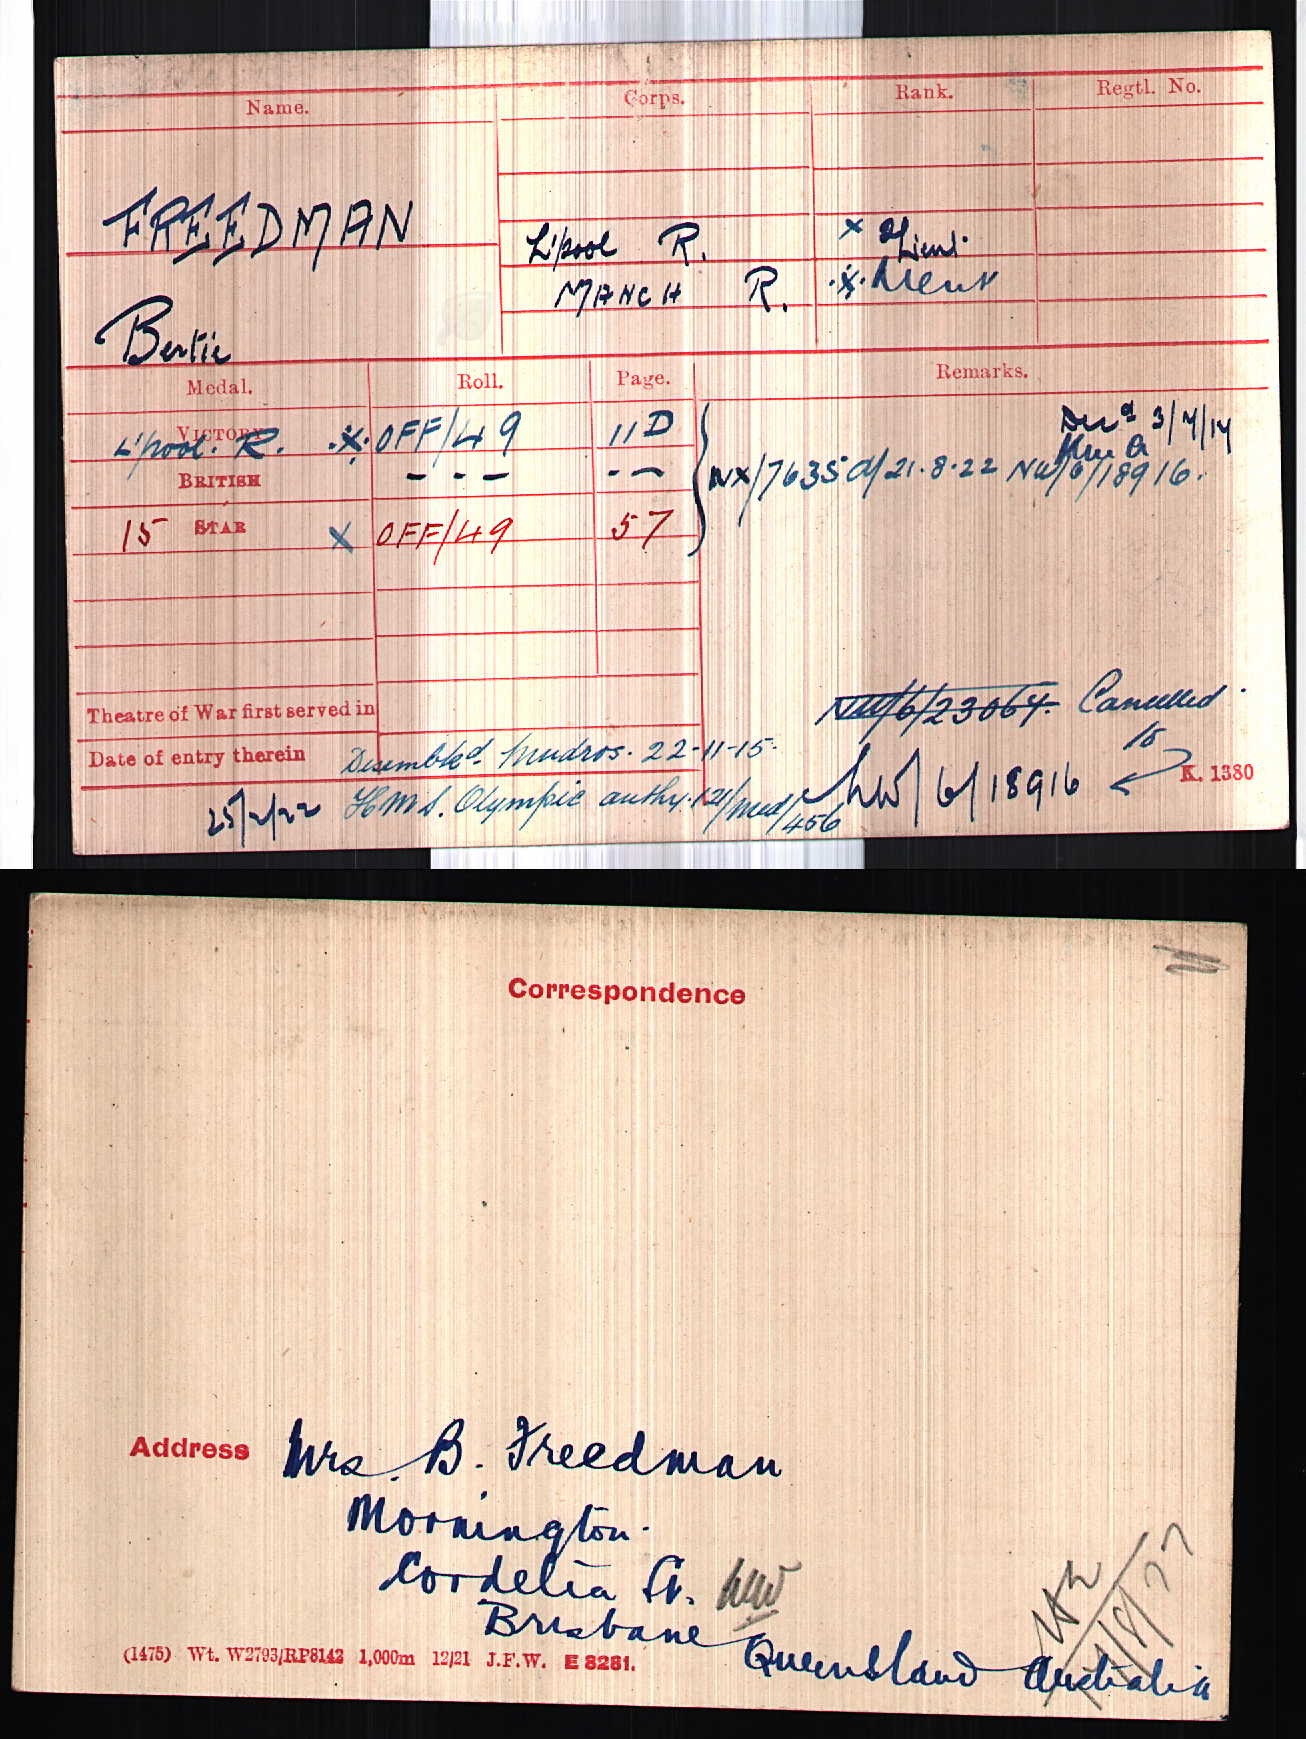 Name. Corps. Rank. Regtl. No.
FREEDMAN
L'pool R. x 2/Lieut.
MANCH R. ·x· Lieut
Bertie
Medal. Roll. Page. Remarks.
VICTORY L'pool. R. ·x· OFF/49 11D
Dec'd 3/7/17
BRITISH - - - - - NX/7635 d/21-8-22 NW/6/18916.
15 STAR x OFF/49 57
NW/6/23064. Cancelled
Theatre of War first served in
Date of entry therein Disembkd. Mudros. 22-11-15.
K. 1380
25/2/22 H.M.S. Olympic authy. 121/Med/456 NW/6/18916
Correspondence
Address Mrs. B. Freedman
Mornington.
Cordelia St. NW
Brisbane
Queensland Australia
(1475) Wt. W2793/RP8142 1,000m 12/21 J.F.W. E 8281.